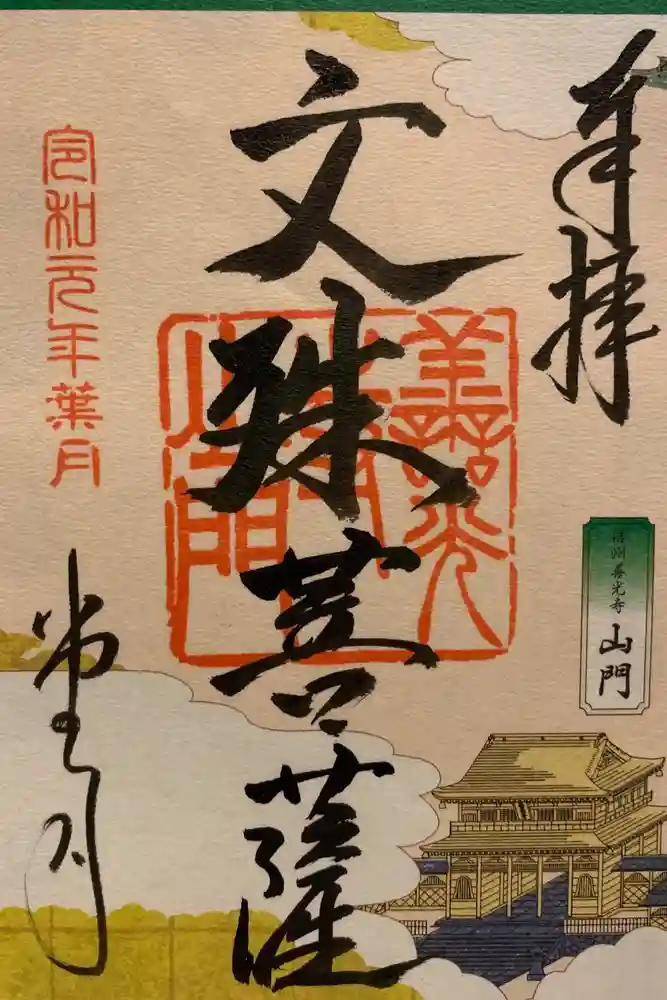 奉拝
信州善光寺
山門
善光寺山門
文殊菩薩
令和元年葉月